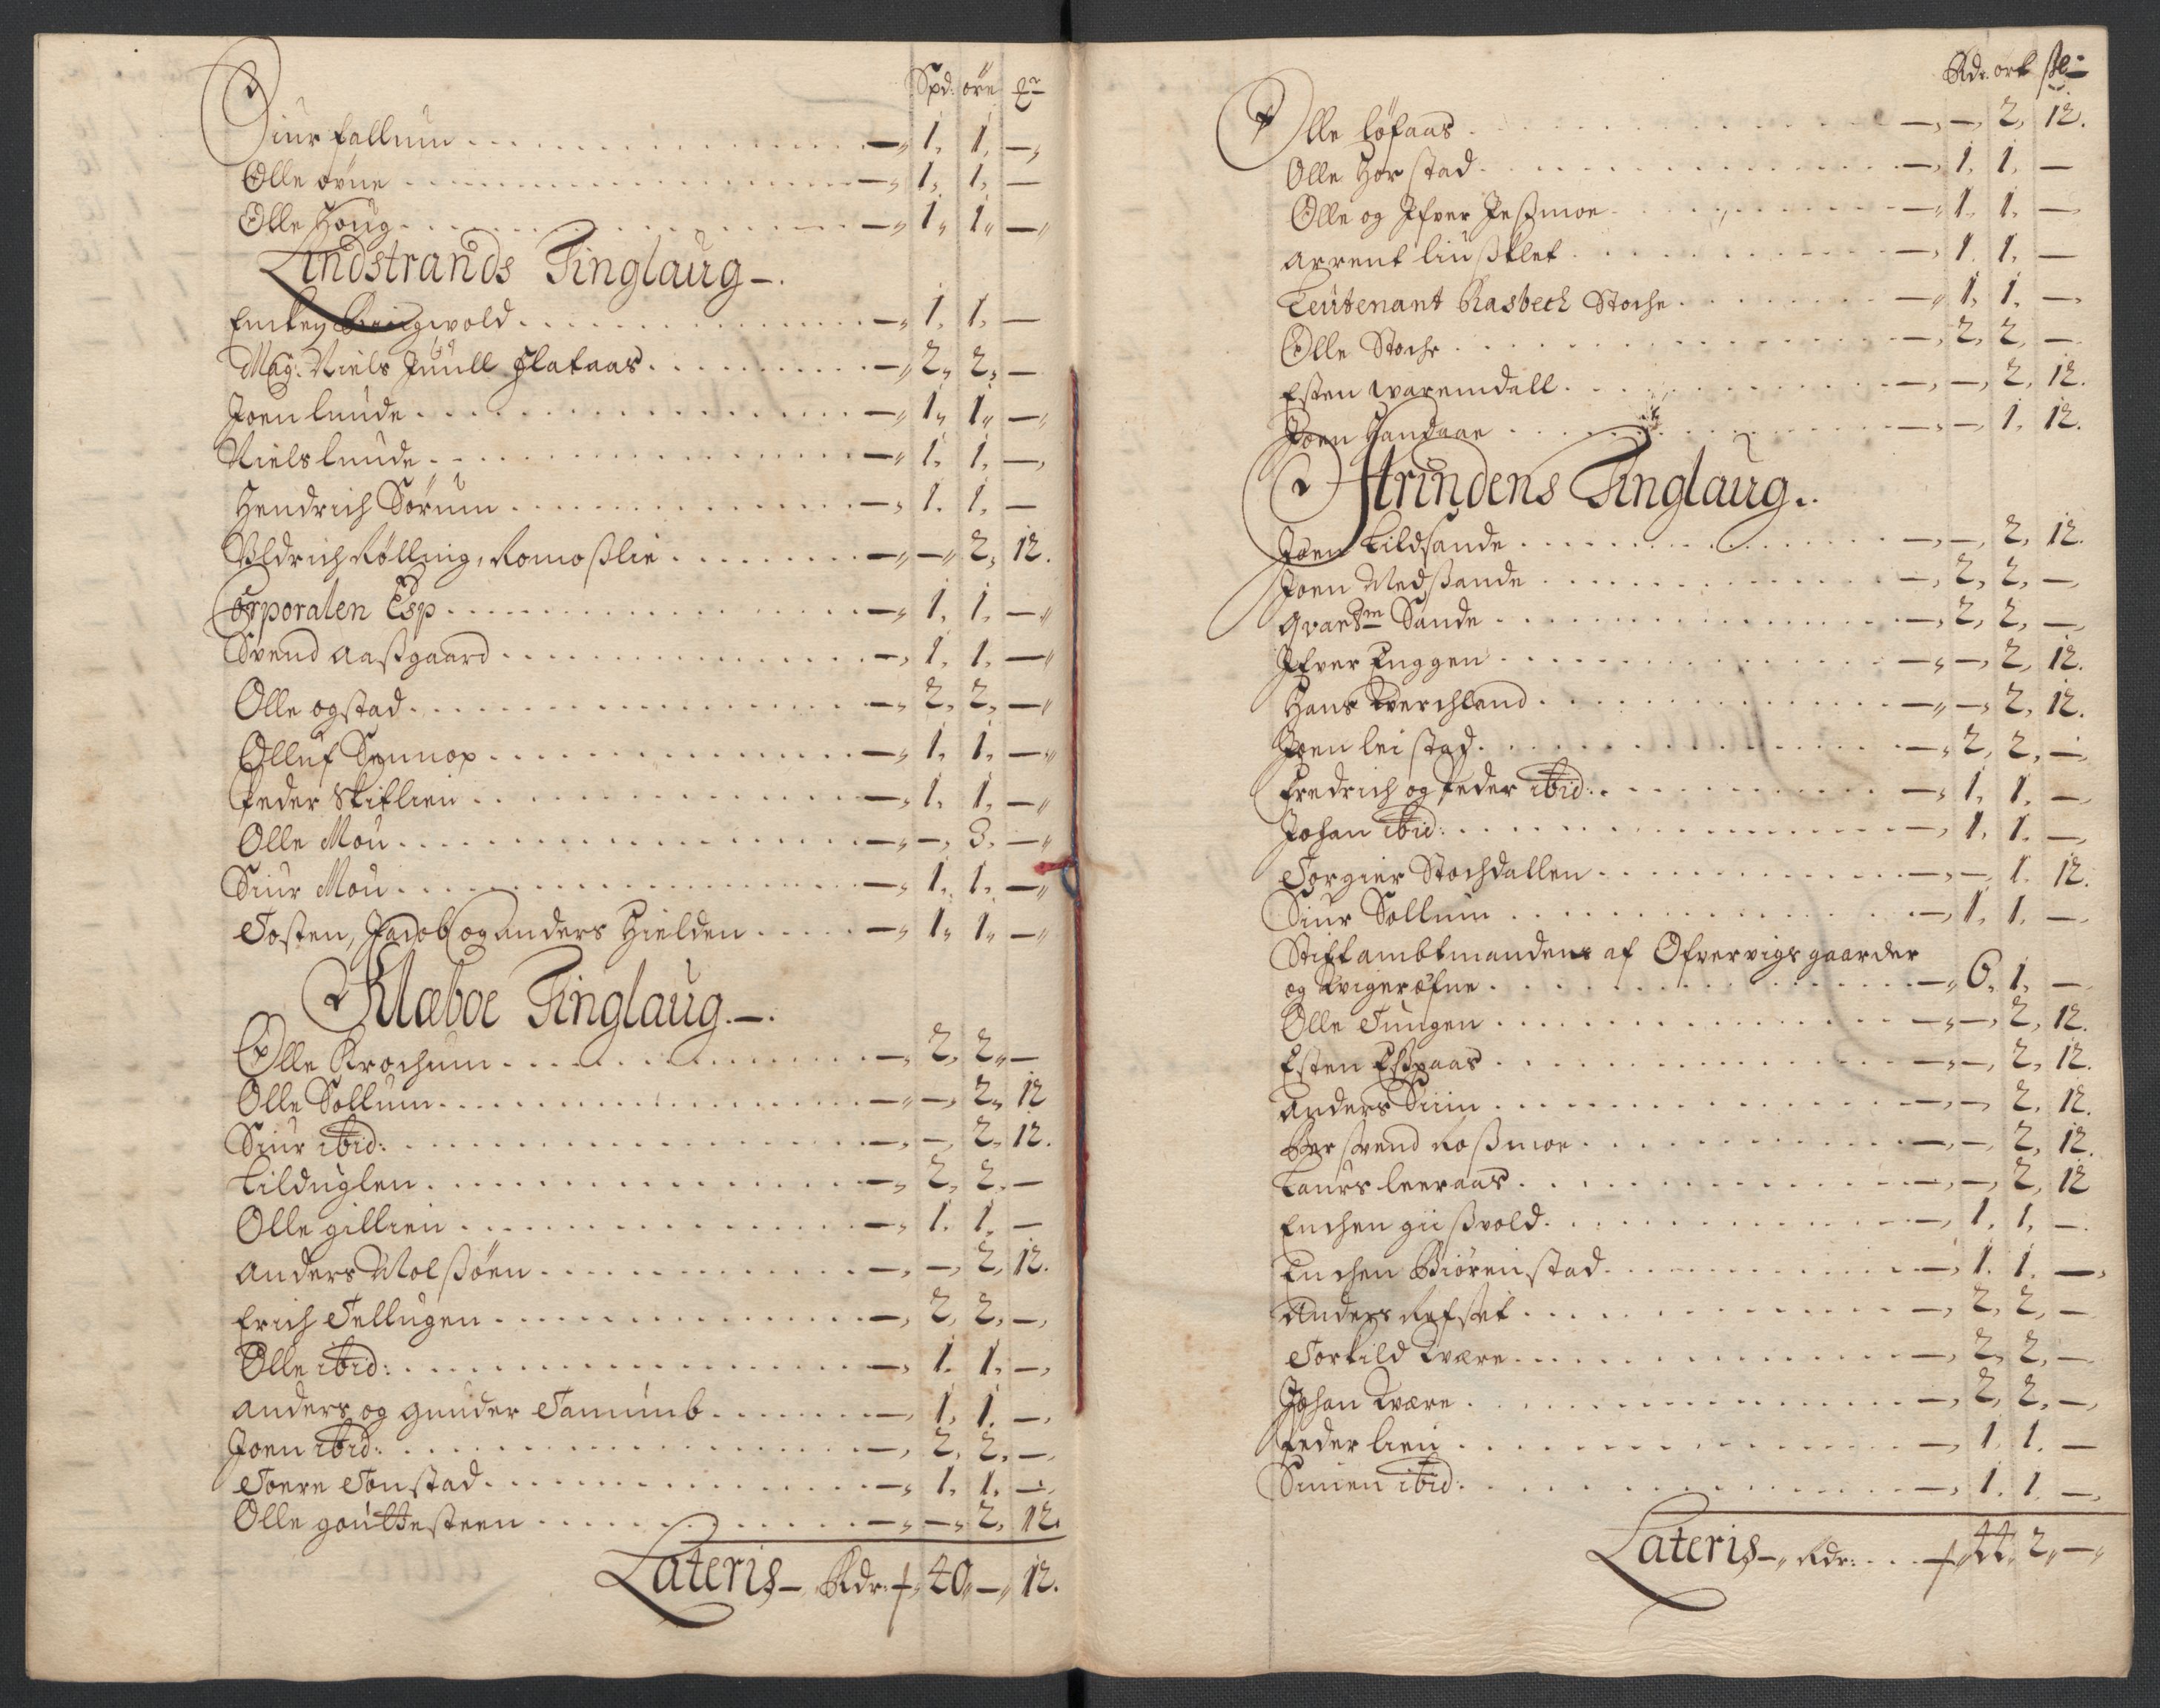 Spd: öre
Siur fallum — 1. 1. —
Olle ovne — 1. 1. —
Olle Houg — 1. 1. —
Lindstrands Tinglaug —.
Encken Ringvold — 1. 1. —
Mag: Niels Juull Flataas — 2. 2. —
Joen lunde — 1. 1. —
Niels lunde — 1. 1. —
Hendrich Sørum — 1. 1. —
Uldrich Rølling, Romoslie — — 2. 12.
Corporalen Esp — 1. 1. —
Svend Aassgaard — 1. 1. —
Olle ogstad — 2. 2. —
Olluf — 1. 1. —
Peder Skiflien — 1. 1. —
Olle Mou — — 3. —
Siur Mou — 1. 1. —
Tosten, Jacob og anders Hielden — 1. 1. —
Klæboe Tinglaug —.
Olle Krochum — 2. 2. —
Olle Sollum — — 2. 12
Siur ibid: — — 2. 12.
Lilduglen — 2. 2. —
Olle gillien — 1. 1. —
Anders Nolssöen — — 2. 12.
Erich Tellugen — 2. 2. —
Olle ibid: — 1. 1. —
Anders og gunder Tanumb — 1. 1. —
Joen ibid: — 2. 2. —
Toere Tonstad — 1. 1. —
Olle gouttesteen — — 2. 12.
Lateris — Rdr: 40 — 12.
Rdr: ort
Olle Løfaas — — 2. 12.
Olle Horstad — 1. 1. —
Olle og Ifver Jessmoe — 1. 1. —
Arrent liussklet — 1. 1. —
Leutenant Rasbech Stoche — 1. 1. —
Olle Stoche — 2. 2. —
Esten waremdall — — 2. 12.
Joen Handaae — — 1. 12.
Strindens Tinglaug.
Joen Lildsande — — 2. 12.
Joen Nedssande — 2. 2. —
Sande — 2. 2. —
Ifver Enggen — — 2. 12.
Hans Kverchland — — 2. 12.
Joen leistad — 2. 2. —
Fredrich og Peder ibid: — 1. 1. —
Johan ibid: — 1. 1. —
Torgier Stochdallen — — 1. 12.
Siur Sollum — 1. 1. —
Stiftambtmandens af Ofvervigs gaarder
og — 6. 1. —
Olle Tungen — — 2. 12.
Esten Espaas — — 2. 12.
Anders Siim — — 2. 12.
Bersvend Rossmoe — — 2. 12.
Laurs leeraas — — 2. 12
Enchen giissvold — 1. 1. —
Enchen Biörenstad — 1. 1. —
Anders Refset — 2. 2. —
Torkild Kvære — 2. 2. —
Johan Kvære — 2. 2. —
Peder lien — 1. 1. —
Simen ibid: — 1. 1. —
Lateris — Rdr: 44. 2. —